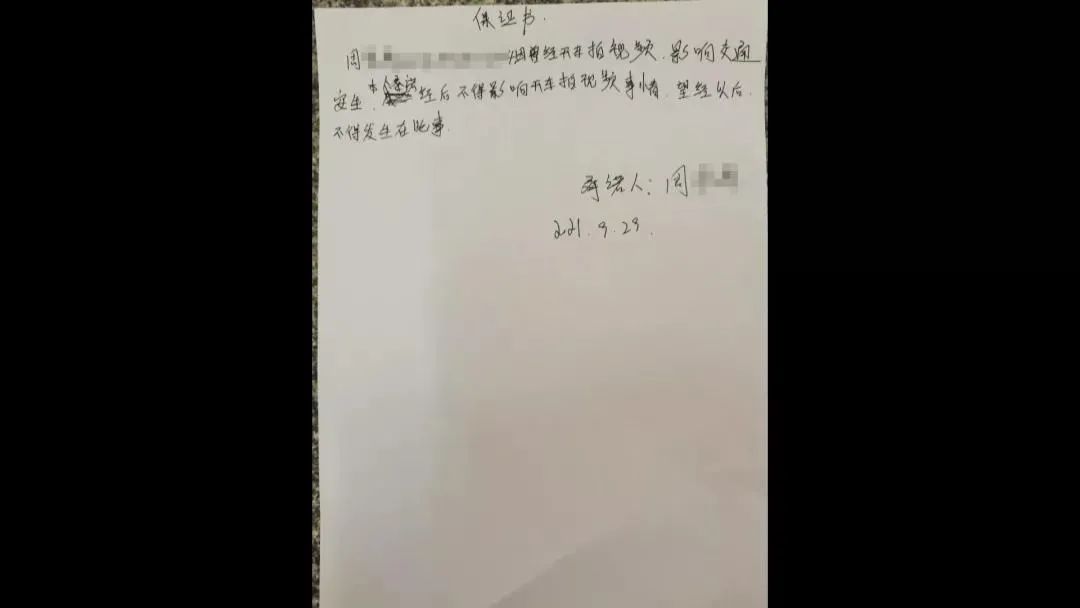 保证书.
周 因曾经开车拍视频.影响交通
安全.本人承诺 经后不得影响开车拍视频事情.望经以后.
不得发生在此事.
承诺人:周
2021.9.29.